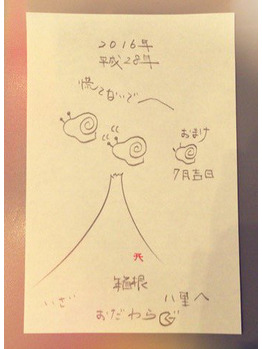 2016年
平成28年
慌てないで〜
おまけ
7月吉日
箱根
いざ 八里へ
おだわら